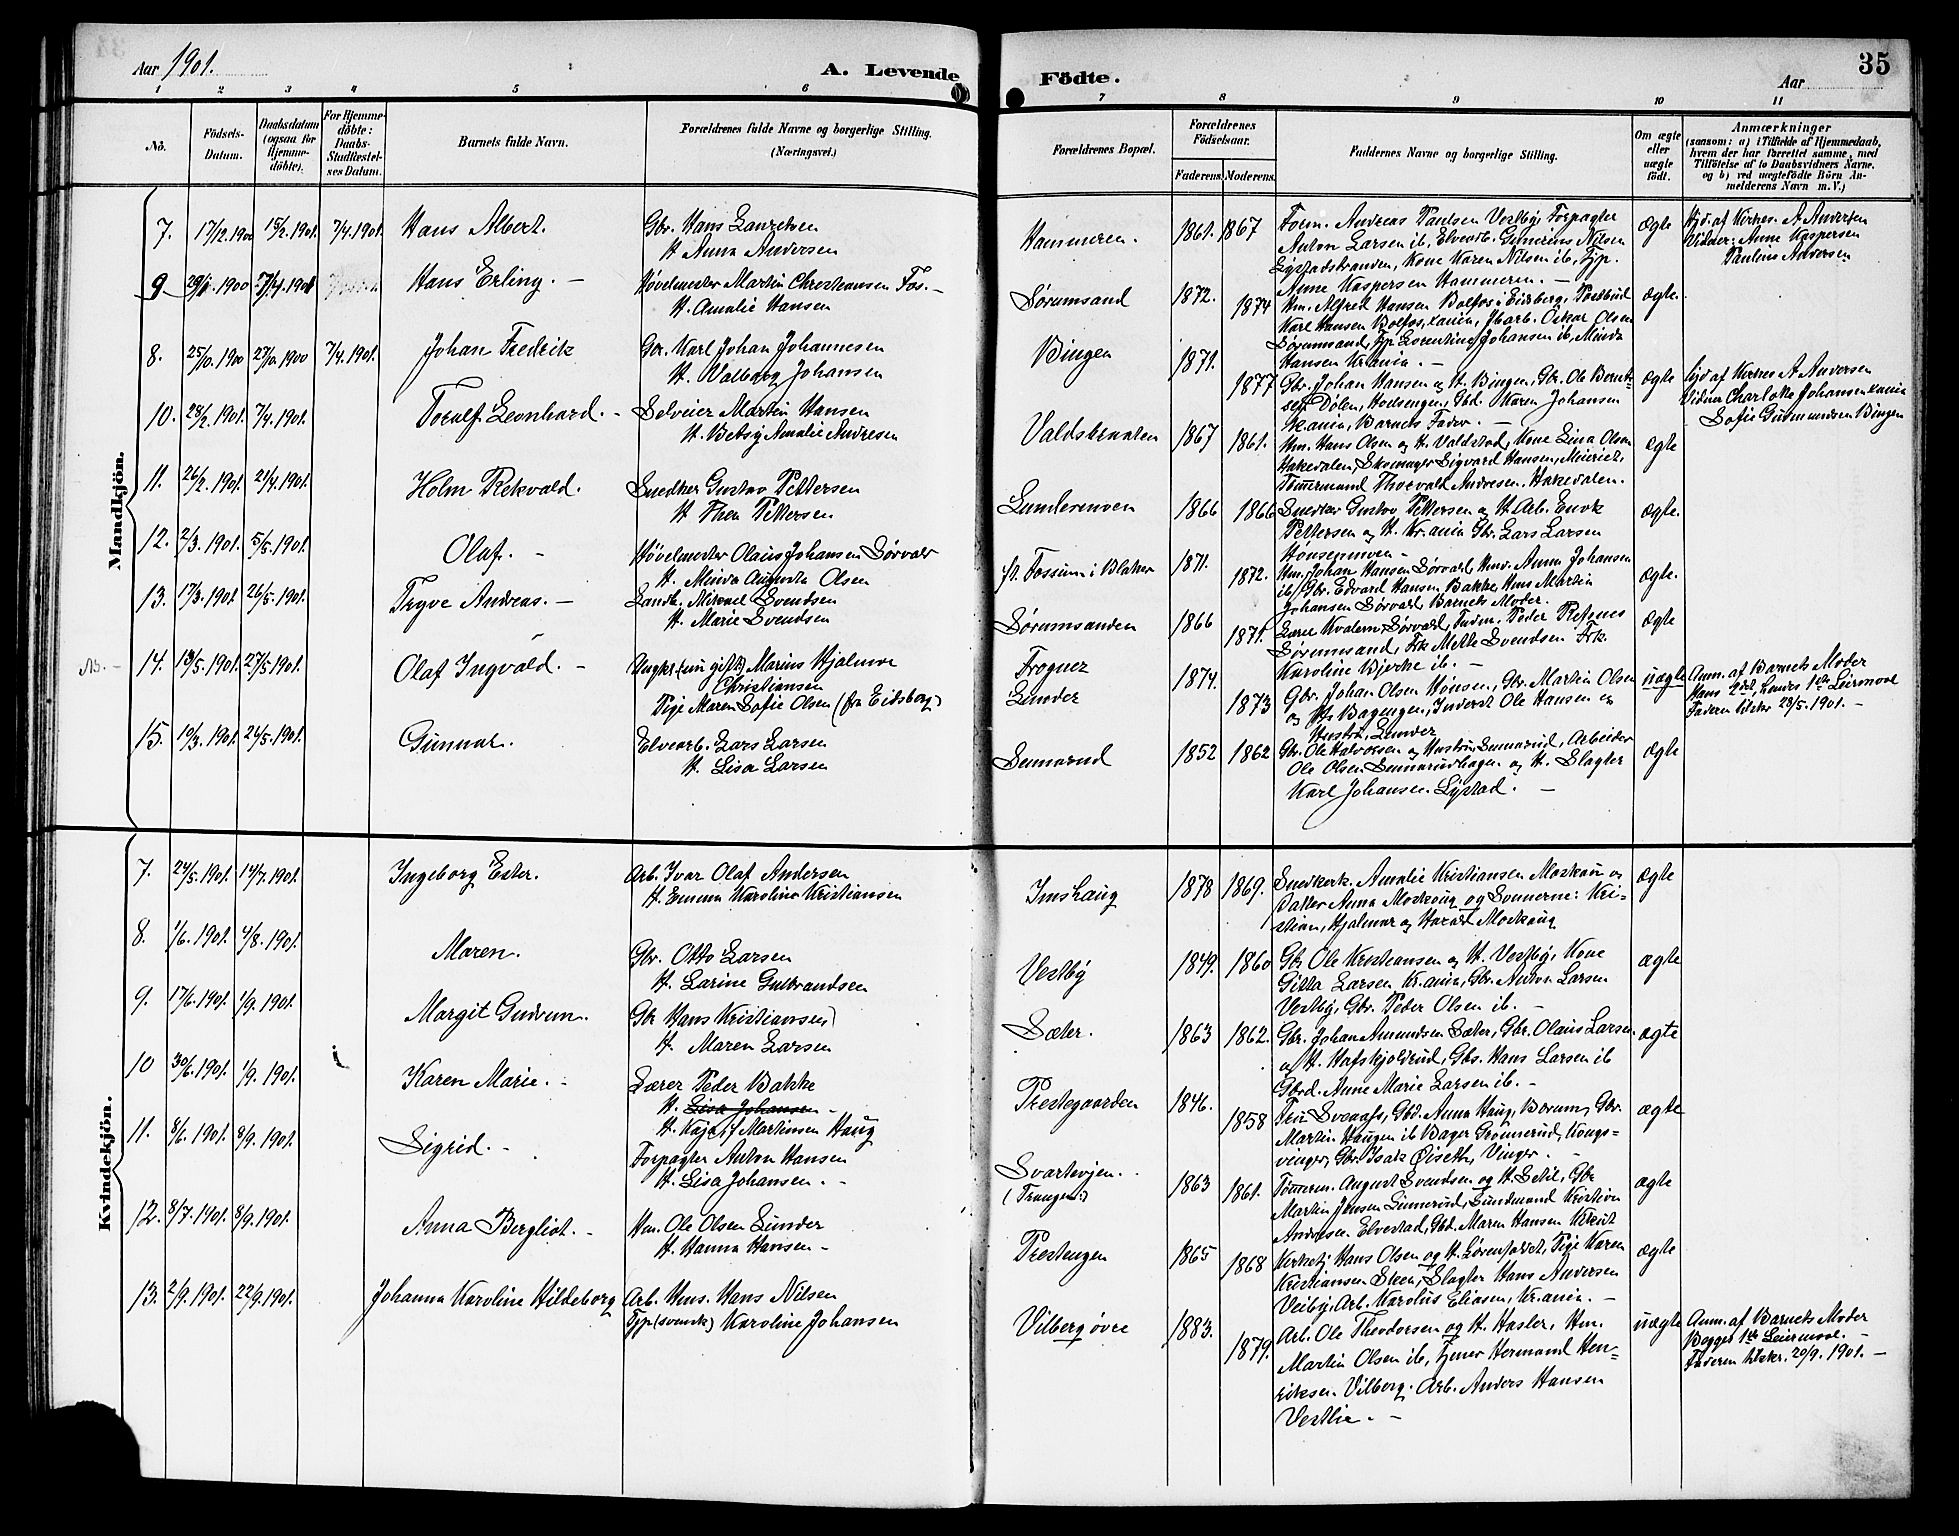 Aar 1901.
A. Levende
Födte.
Aar
35
1 2 3 4 5 6 7 8 9 10 11
No.
Födsels-
Datum.
Daabsdatum
(ogsaa for
Hjemme-
döbte).
For Hjemme-
döbte:
Daabs-
Stadfæstel-
ses Datum.
Barnets fulde Navn.
Forældrenes fulde Navne og borgerlige Stilling.
(Næringsvei.)
Forældrenes Bopæl.
Forældrenes
Födselsaar.
Faderens. Moderens.
Faddernes Navne og borgerlige Stilling.
Om ægte
eller
uægte
födt.
Anmærkninger
(saasom: a) i Tilfælde af Hjemmedaab,
hvem der har forrettet samme, med
Tilföielse af to Daabsvidners Navne.
og b) ved uægtefödte Börn An-
melderens Navn m. V.)
Mandkjön.
7. 17/12.1900 15/2.1901. 7/4.1901. Hans Albert.
Gbr. Hans Lauritsen
H. Anna Andersen
Hammeren. 1861. 1867
Form. Andreas Paulsen Vestby, Forpagter
Anton Larsen ib, Elvearb. Gunerius Nilsen
Lystadstranden, Kone Karen Nilsen ib, Tjp.
Anne Kaspersen Hammeren. –
ægte
Hjd. af Kirkes. A Andersen
Vidner: Anne Kaspersen
Pauline Andersen
9. 1900 Hans Erling. –
Hövelmester Martin Christiansen Fos. –
H. Amalie Hansen
Sørumsand 1872. 1874
Hm. Alfred Hansen Bolfos i Eidsberg, Postbud
Karl Hansen Bolfos, Xania, Jbarb. Oskar Olsen
Sørumsand, Tjp Lorentine Johansen ib, Minda
Hansen Krania. –
ægte.
8. 25/10.1900 27/10.1900 7/4.1901. Johan Fredrik
Gbr. Karl Johan Johannesen
H. Valborg Johansen
Bingen 1871. 1877
Gbr. Johan Hansen og H. Bingen, Gbr. Ole Bernt-
sen Dölen, Hodsengen, Gbd. Karen Johansen
Krania, Barnets Fader. –
ægte
Hjd af Kirkes A Andersen
Vidner Charlotte Johansen Xania
Sofie Gudmundsen Bingen
10. 28/2.1901. 7/4.1901. Toralf Leonhard. –
Selveier Martin Hansen
H. Betsy Amalie Andresen
Valdsbraaten 1867 1861.
Hm. Hans Olsen og H. Valdstad, Kone Lina Olsen
Hakedalen, Skomager Sigvard Hansen, Meieriet,
Tömmermand Thorvald Andresen, Hakedalen.
ægte
11. 26/2.1901. 21/4.1901. Holm Rekvald.
Snedker Gustav Pettersen
H. Thea Pettersen
Lundermoen 1866 1866
Snedker Gustav Pettersen og H. Arb. Enok
Pettersen og H. Kr.ania Gbr. Lars Larsen
Hönsenmoen –
ægte.
12. 2/3.1901. 5/5.1901. Olaf. –
Hövelmester Olaus Johansen Sørvald
H. Minda Augusta Olsen
fr. Fossum i Blaker 1871. 1872.
Hm. Johan Hansen Sørvald, Hmd. Anna Johansen
ib, Gbr. Edvard Hansen Bakke Hms Martin
Johansen Sørvald, Barnets Moder.
ægte.
13. 17/3.1901 26/5.1901. Trygve Andreas. –
Landh. Mikael Svendsen
H. Marie Svendsen
Sørumsanden 1866 1871.
Lærer Kvalem, Sørvald, Fuldm. Peder Refsnes
Sørumsand, Frk Mette Svendsen Frk.
Karoline Bjerke ib. –
ægte
NB. – 14. 13/5.1901. 27/5.1901. Olaf Ingvald. –
Ungkr. (nu gift) Marius Hjalmar
Christiansen
Pige Maren Sofie Olsen (fra Eidsberg)
Frogner
Lunder 1874. 1873
Gbr. Johan Olsen Hönsen, Gbr. Martin Olsen
og H. Bagengen, Inderst Ole Hansen og
Hustru, Lunder
uægte
Anm. af Barnets Moder
Hans 2det, hendes 1ste Leiermaal
Faderen tilskr 28/5.1901. –
15. 19/3.1901. 24/5.1901. Gunnar.
Elvearb. Lars Larsen
H. Lisa Larsen
Sennerud 1852 1862
Gbr. Ole Halvorsen og Hustru Sennerud, Arbeider
Ole Olsen Sennerudhagen og H. Slagter
Karl Johansen Lystad. –
ægte
Kvindekjön.
7. 24/5.1901. 14/7.1901. Ingeborg Ester.
Arb. Ivar Olaf Andersen
H. Emma Karoline Kristiansen
Imshaug 1878 1869.
Snedkerk. Amalie Kristiansen Moskaug og
Datter Anna Moskaug og Sønnerne: Kri-
stian, Hjalmar og Harald Moskaug
ægte
8. 1/6.1901. 4/8.1901. Maren.
Gbr. Otto Larsen
H. Larine Gulbrandsen
Vestby 1849. 1860
Gbr Ole Kristiansen og H. Vestby, Kone
Gitta Larsen Kr.ania, Gbr. Anton Larsen
Vestby, Gbr. Peder Olsen ib. –
ægte
9. 17/6.1901. 1/9.1901. Margit Gudrun.
Gbr Hans Kristiansen
H. Maren Larsen
Sæter. 1863 1862.
Gbr. Johan Amundsen Sæter, Gbr. Olaus Larsen
og H. Hafskjoldrud, Gbs. Hans Larsen ib
Gbrd. Anne Marie Larsen ib. –
ægte
10 30/6.1901. 1/9.1901. Karen Marie. –
Lærer Peder Bakke
H. Lisa Johansen –
H. Kaja f Martinsen Haug
Prestegaarden 1846. 1858
Gbd. Anna Haug, Borum, Gbr.
Martin Haugen ib Bager Grönnerud, Kongs=
vinger, Gbr. Isak Öiseth, Vinger. –
ægte
11. 8/6.1901. 8/9.1901. Sigrid. –
Forpagter Anton Hansen
H. Lisa Johansen. –
Svartevjen.
(Trangen:) 1863 1861.
Tömerm. August Svendsen og H. Sætil, Gbr
Martin Jensen Linnerud, Sundmand Kristian
Andresen Elvestad, Gbd. Maren Hansen
ægte
12. 8/7.1901. 8/9.1901. Anna Bergliot. –
Hm. Ole Olsen Lunder
H. Hanna Hansen –
Prestengen 1865 1868
Kirketj Hans Olsen og H. Sörenfaldet, Pige Karen
Kristiansen Steen, Slagter Hans Andersen
Veiby, Arb. Karolus Eliasen, Krania. –
ægte
13. 2/9.1901. 22/9.1901. Johanna Karoline Hildeborg
Arb. Hms. Hans Nilsen
Tjp (svensk) Karoline Johansen
Vilberg övre 1883. 1879.
Arb. Ole Theodorsen og H. Hasler, Hm.
Martin Olsen ib, Tjener Hermand Hen=
riksen Vilberg. Arb. Anders Hansen
Vestlie. –
uægte
Anm. af Barnets Moder
Begges 1ste Leiermaal. –
Faderen tilskr. 20/9.1901. –